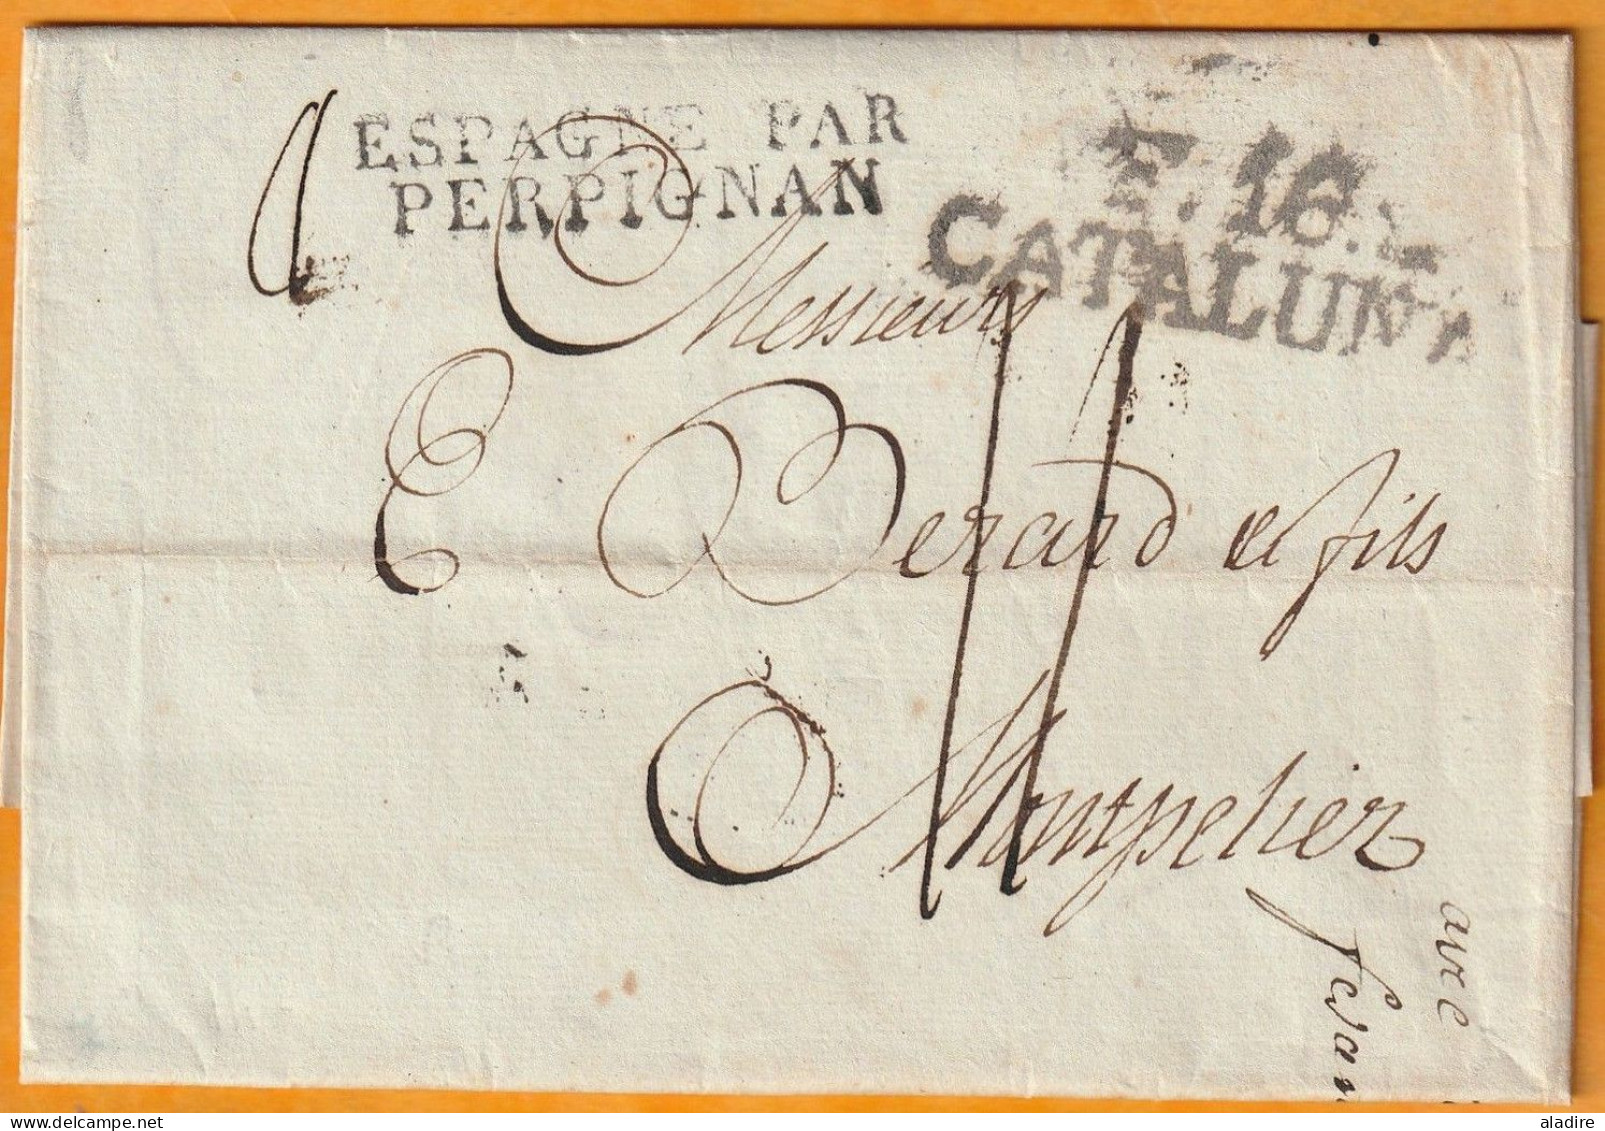 ESPAGNE PAR
PERPIGNAN
E. 16.
CATALUNA
Messieurs
E Berard et fils
Montpelier
avec
aladire
delcampe.net